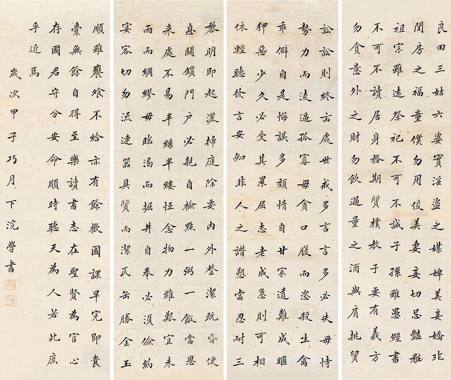 良田三姑六婆實淫盜之媒婢美妾嬌非
閨房之福童僕勿用俊美妻妾切忌豔
祖宗雖遠祭祀不可不誠子孫雖愚經書
不可不讀居身務期質樸教子要有義方
勿貪意外之財勿飲過量之酒與肩挑貿
訟訟則終凶處世戒多言言多必失毋恃
勢力而凌逼孤寡毋貪口腹而恣殺生禽
乖僻自是悔誤必多頹惰自甘家道難成
狎惡少久必受其累屈志老成急則可相
依輕聽發言安知非人之譖愬當忍耐三
黎明即起灑掃庭除要內外整潔既昏便
息關鎖門戶必親自檢點一粥一飯當思
來處不易半絲半縷恆念物力維艱宜未
雨而綢繆毋臨渴而掘井自奉必須儉約
宴客切勿流連器具質而潔瓦缶勝金玉
順雖饔飧不給亦有餘歡國課早完即囊
橐無餘自得至樂讀書志在聖賢為官心
存國君守分安命順時聽天為人若此庶
乎近焉
歲次甲子巧月下浣學書